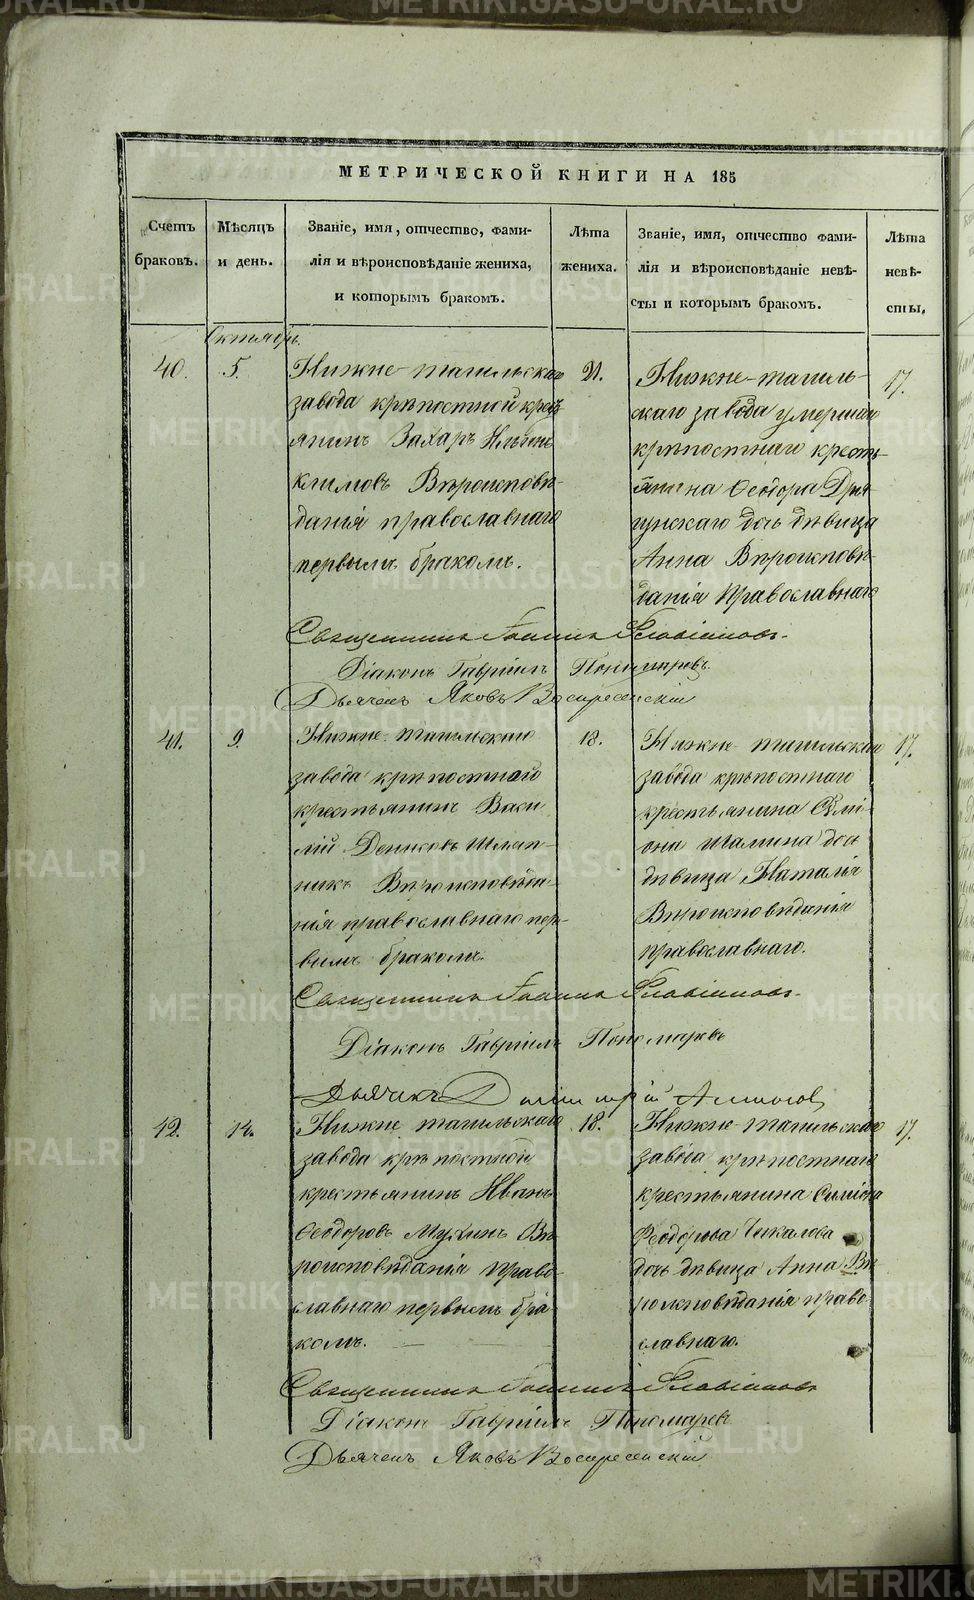 МЕТРИЧЕСКОЙ КНИГИ НА 185
Счетъ браковъ.
Мѣсяцъ и день.
Званіе, имя, отчество, фами-
лія и вѣроисповѣданіе жениха,
и которымъ бракомъ.
Лѣта жениха.
Званіе, имя, отчество фами-
лія и вѣроисповѣданіе невѣ-
сты и которымъ бракомъ.
Лѣта невѣ-
сты,
Октябрь.
40.
5.
Нижне-тагильскаго
завода крѣпостной крестъ
янинъ Захаръ Ильинъ
Климовъ Вѣроисповѣ-
данія православнаго
первымъ бракомъ.
21.
Нижне-тагиль-
скаго завода умершаго
крѣпостнаго кресть-
янина Ѳеодора
дочь дѣвица
Анна Вѣроисповѣ-
данія Православнаго
17.
Священникъ Іоаннъ Словцовъ
Діаконъ Гавріилъ Пономаревъ
Дьячекъ Яковъ Воскресенскій
41.
9.
Нижне-тагильскаго
завода крѣпостнаго
крестьянинъ Васи
лій Денисовъ Шляп-
никъ Вѣроисповѣда-
нія православнаго пер-
вымъ бракомъ.
18.
Нижне-тагильскаго
завода крѣпостнаго
крестьянина Симі-
она Шалина дочь
дѣвица Наталія
Вѣроисповѣданія
православнаго.
17.
Священникъ Іоаннъ
Діаконъ Гавріилъ Пономаревъ
Дьячикъ Димитрій
42.
14.
Нижне тагильскаго
завода крѣпостной
крестьянинъ Иванъ
Ѳеодоровъ Мухинъ Вѣ
роисповѣданія право-
славнаго первымъ бра
комъ.
18.
Нижне-тагильскаго
завода крѣпостнаго
крестьянина Симіона
Феодорова Чикалова
дочь дѣвица Анна Вѣ
роисповѣданія право
славнаго.
17.
Священникъ Іоаннъ
Діаконъ Гавріилъ Пономаревъ
Дьячекъ Яковъ Воскресенскій
METRIKI.GASO-URAL.RU